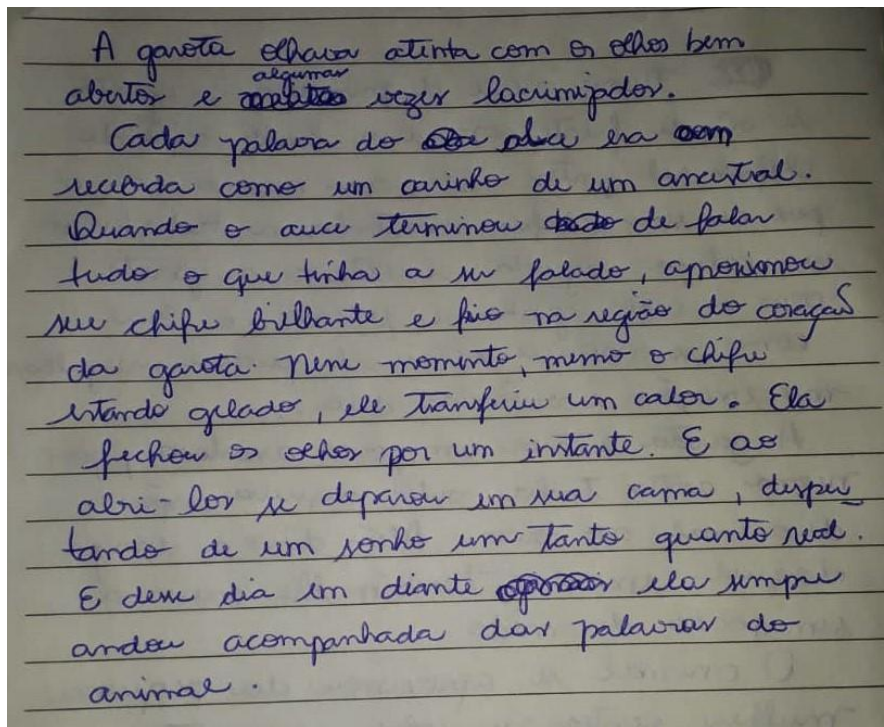 A garota olhava atenta com os olhos bem
abertos e algumas vezes lacrimejados.
Cada palavra do alce era
recebida como um carinho de um ancestral.
Quando o auce terminou de falar
tudo o que tinha a ser falado, aproximou
seu chifre brilhante e frio na região do coração
da garota. Nesse momento, mesmo o chifre
estando gelado, ele transferiu um calor. Ela
fechou os olhos por um instante. E ao
abri-los se deparou em sua cama, desper_
tando de um sonho um tanto quanto real.
E desse dia em diante ela sempre
andou acompanhada das palavras do
animal.